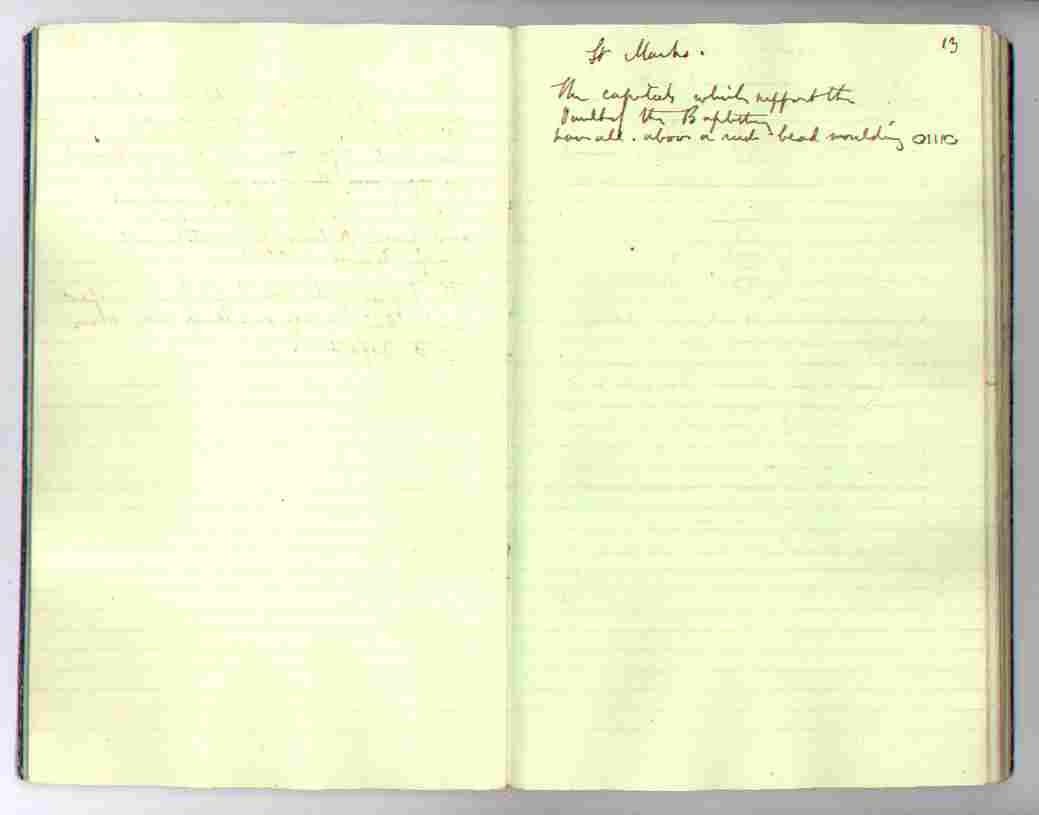 13
St Marks.
The capitals which support the
Vault of the Baptistery
have all. above a rude bead moulding